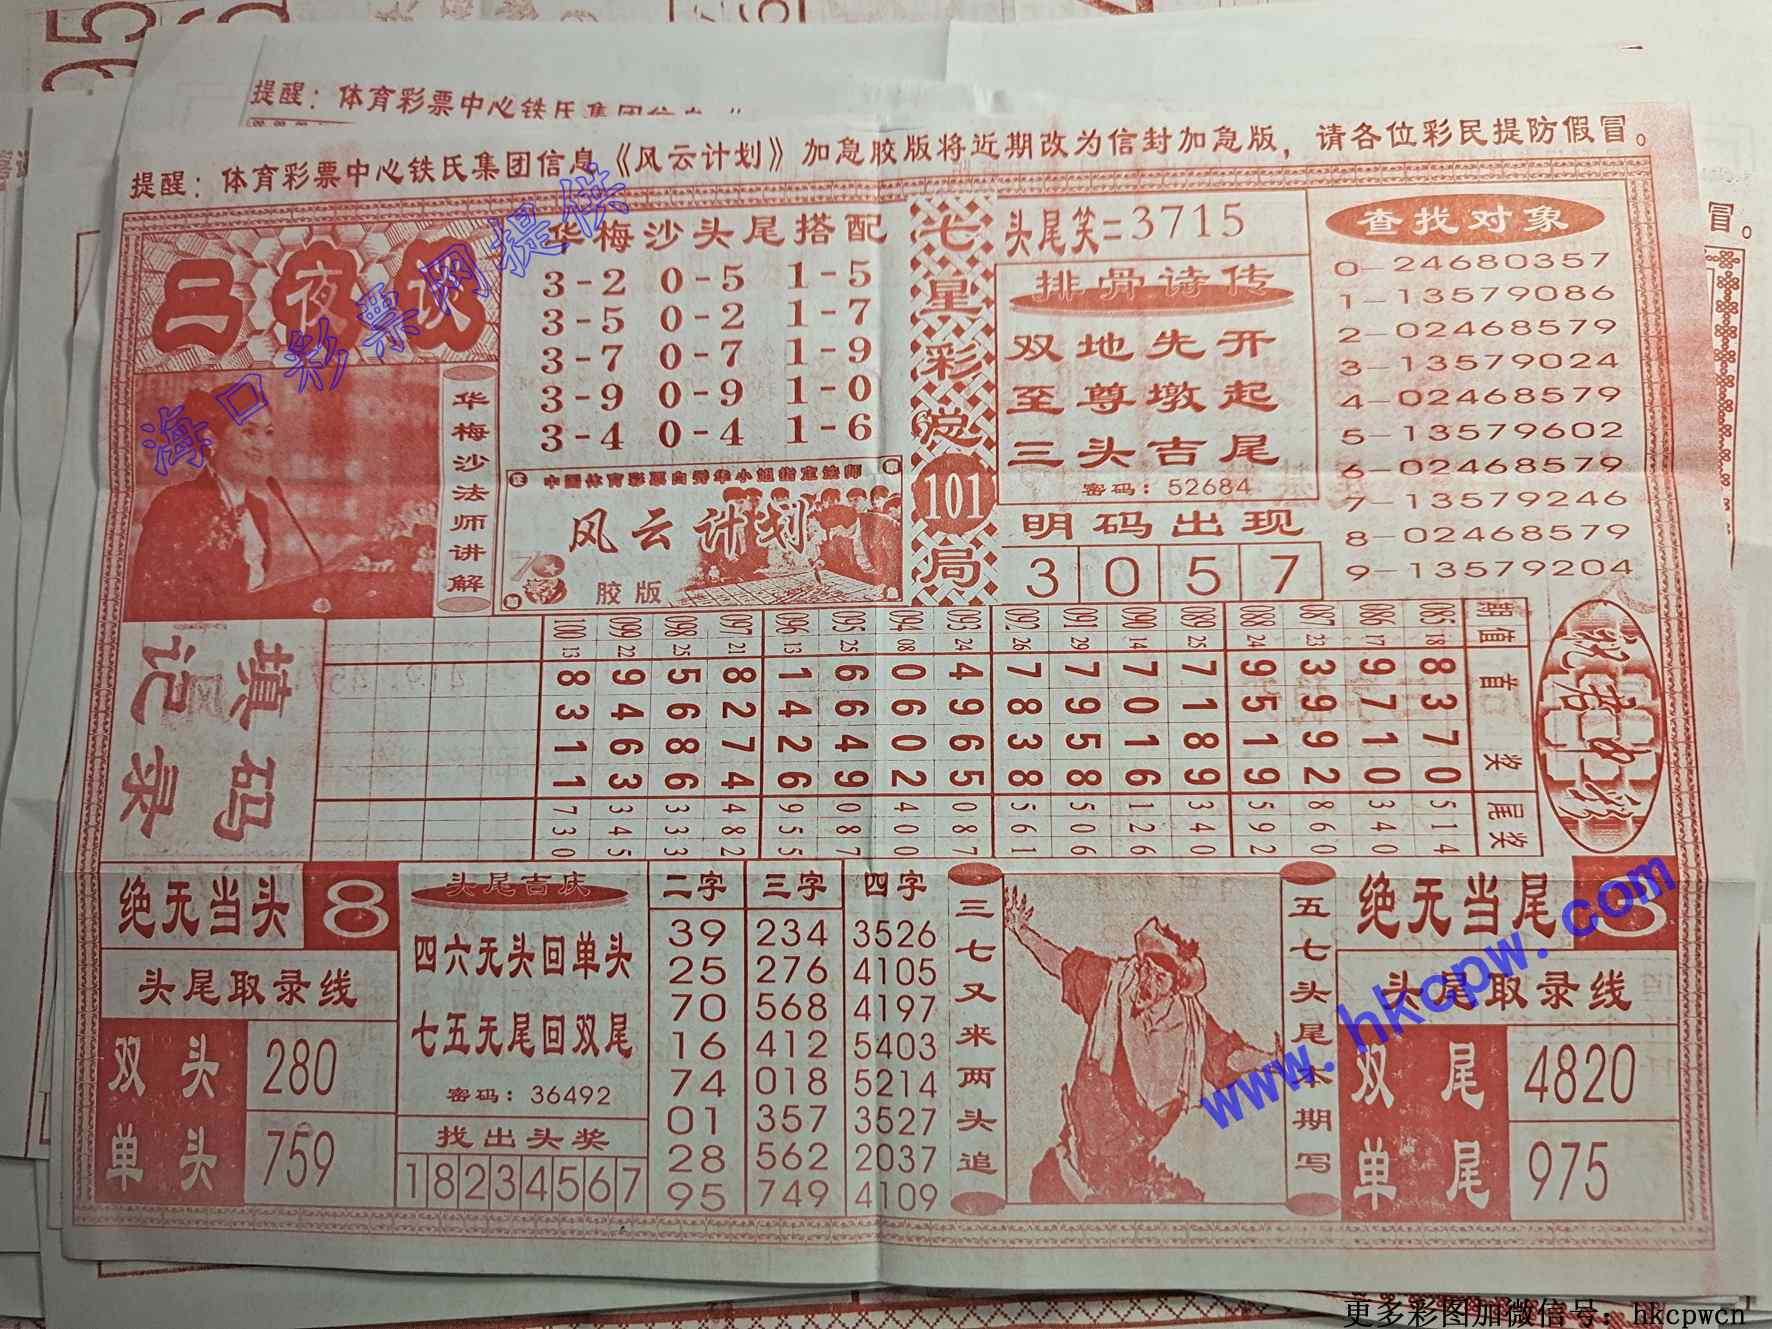 提醒：体育彩票中心铁氏集团信息
提醒：体育彩票中心铁氏集团信息《风云计划》加急胶版将近期改为信封加急版，请各位彩民提防假冒。
冒。
二夜
海口彩票网提供
华梅沙法师讲解
华梅沙头尾搭配
3-2 0-5 1-5
3-5 0-2 1-7
3-7 0-7 1-9
3-9 0-9 1-0
3-4 0-4 1-6
风云计划
胶版
七星彩
101
局
头尾笑=3715
排骨诗传
双地先开
至尊墩起
三头吉尾
密码：52684
明码出现
3 0 5 7
查找对象
0-24680357
1-13579086
2-02468579
3-13579024
4-02468579
5-13579602
6-02468579
7-13579246
8-02468579
9-13579204
填码记录
期 100 099 098 097 096 095 094 093 092 091 090 089 088 087 086 085
值 13 22 25 21 13 25 08 24 26 29 14 25 24 23 17 18
首奖
8 9 5 8 1 6 0 4 7 7 7 7 9 3 9 8
3 4 6 2 4 6 6 9 8 9 0 1 5 9 7 3
1 6 8 7 2 4 0 6 3 5 1 8 1 9 1 7
1 3 6 4 6 9 2 5 8 8 6 9 9 2 0 0
尾奖
7 3 3 4 9 0 4 0 5 5 1 3 5 8 3 5
3 4 3 8 5 8 0 8 6 0 2 4 9 6 4 1
0 5 3 2 5 7 0 7 1 6 6 0 2 0 0 4
绝无当头 8
头尾取录线
双头 280
单头 759
头尾吉庆
四六无头回单头
七五无尾回双尾
密码：36492
找出头奖
1 8 2 3 4 5 6 7
二字 三字 四字
39 234 3526
25 276 4105
70 568 4197
16 412 5403
74 018 5214
01 357 3527
28 562 2037
95 749 4109
三七又来两头追
五七头尾本期写
绝无当尾
头尾取录线
双尾 4820
单尾 975
www.hkcpw.com
更多彩图加微信号：hkcpwcn